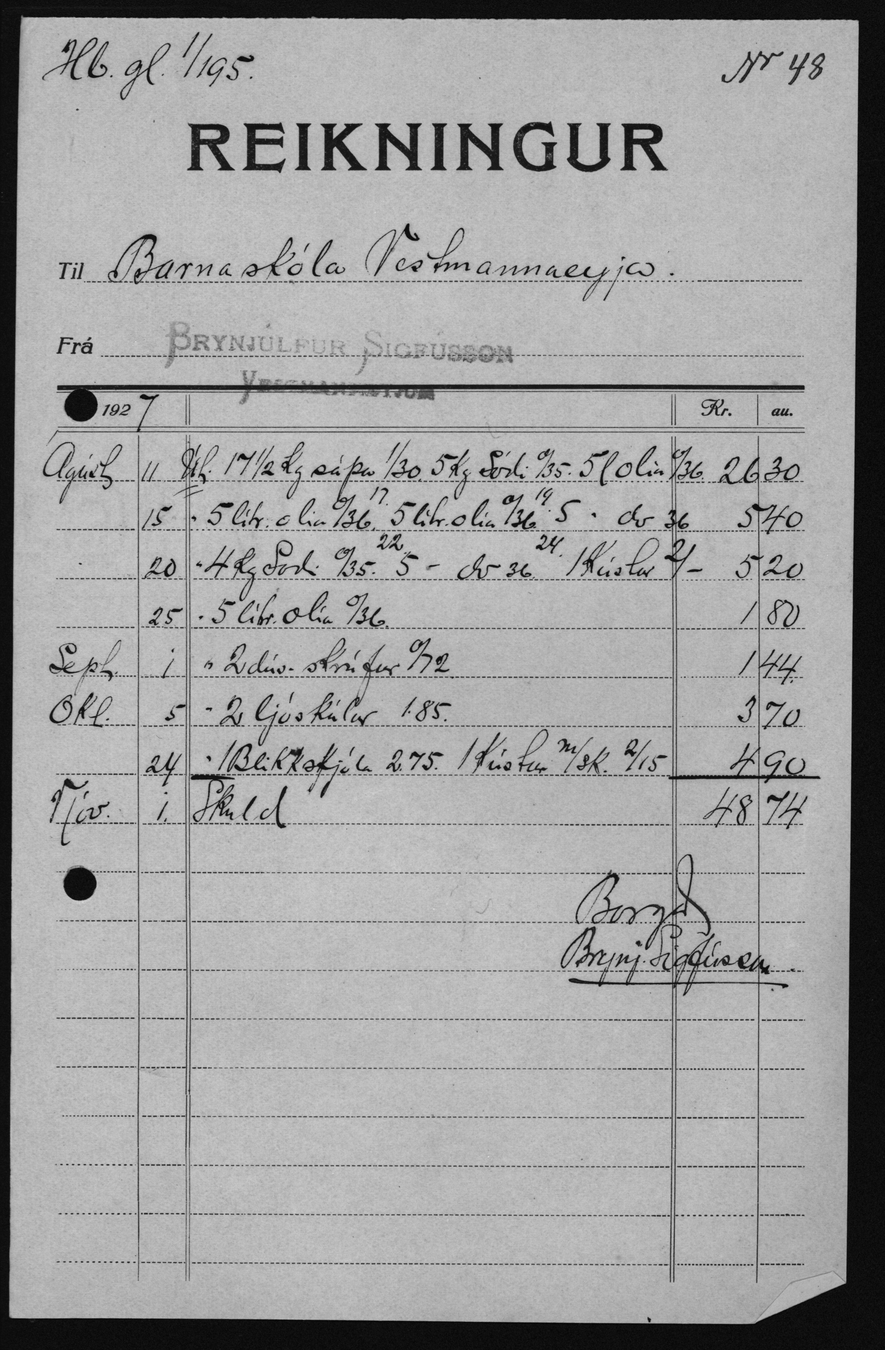 Hb. gl. 1/195.
Nr 48
REIKNINGUR
Til Barnaskóla Vestmannaeyja.
Frá BRYNJÚLFUR SIGFÚSSON
VESTMANNAEYJUM
1927 Kr. au.
Ágúst 11 Út. 17 1/2 Kg sápa 1/30. 5 Kg Sódi 0/35. 5 l olia 0/36. 26 30
15 " 5 litr. olia 0/36. 17. 5 litr. olia 0/36 19. 5 " do 36 5 40
20 " 4 Kg Sodi 0/35. 22. 5 – do 36 24. 1 Kústur 2/– 5 20
25 " 5 litr. olia 0/36. 1 80
Sept. 1 " 2 dús. skrúfur 0/72 1 44
Okt. 5 " 2 ljóskúlur 1.85. 3 70
24 " 1 Blikkskjóla 2.75. 1 Kústur m/sk. 2/15 4 90
Nóv. 1. Skuld 48 74
Borgað
Brynj. Sigfússon.